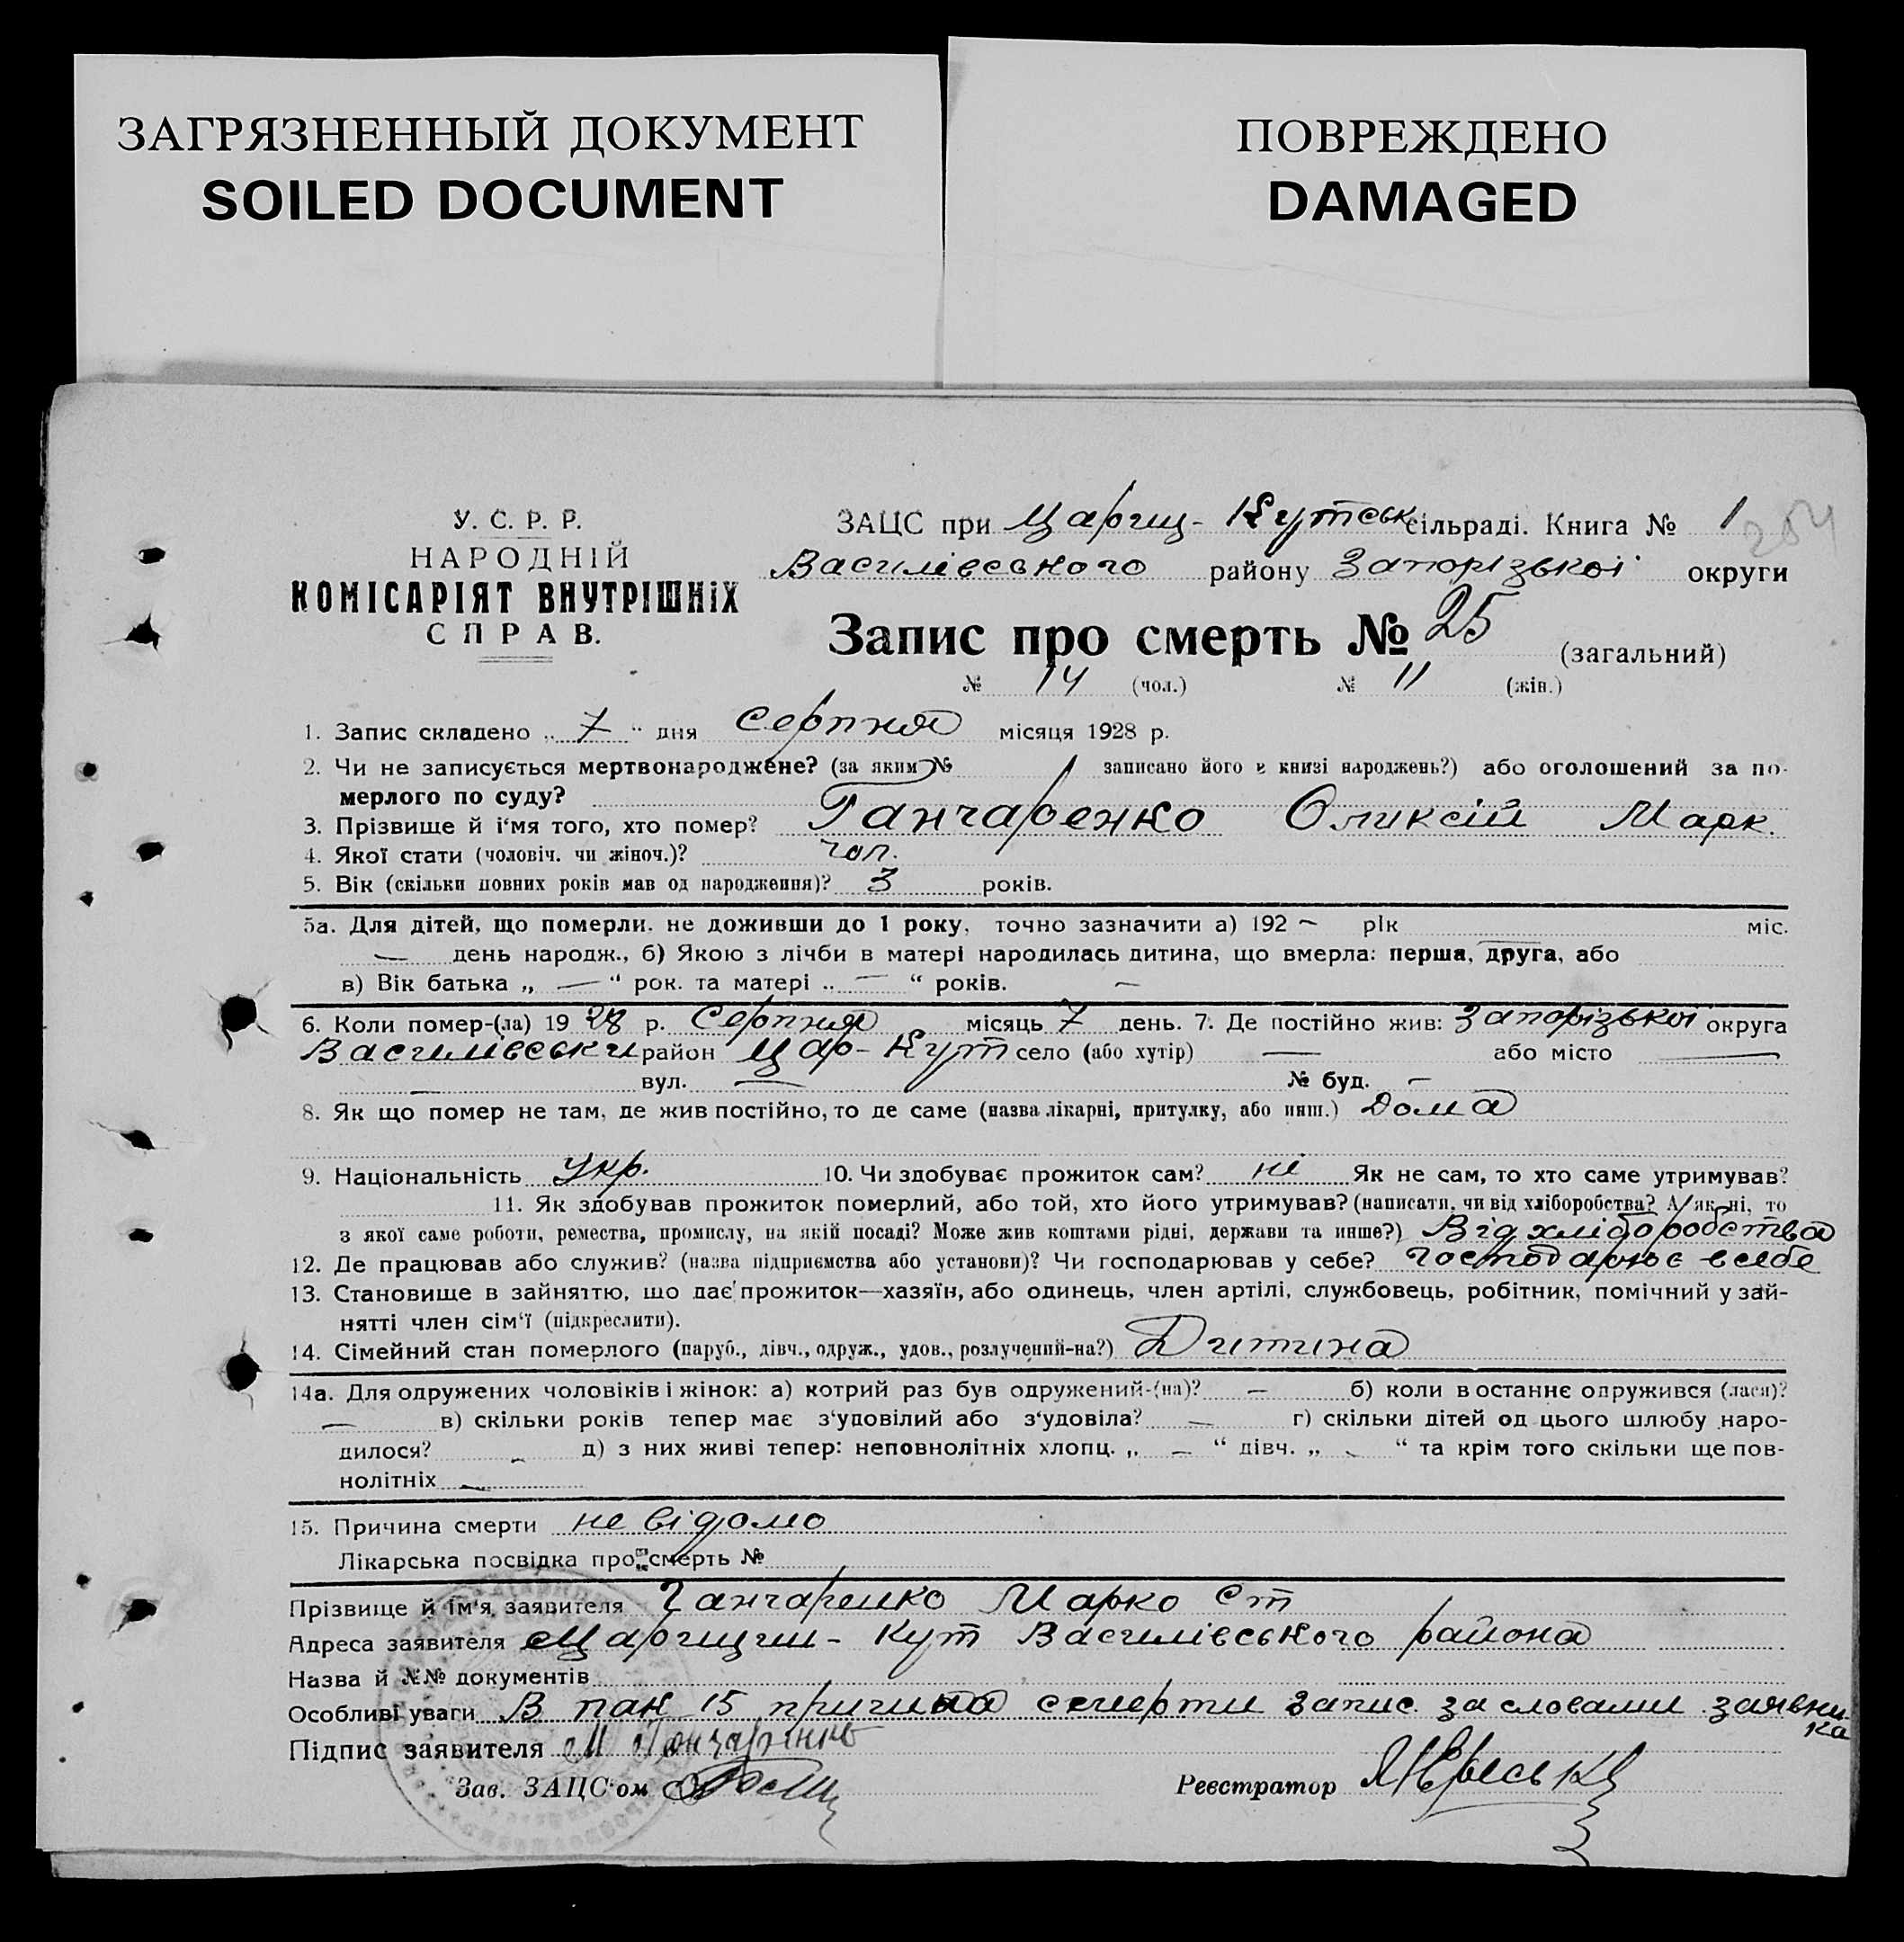 ЗАГРЯЗНЕННЫЙ ДОКУМЕНТ
SOILED DOCUMENT
ПОВРЕЖДЕНО
DAMAGED
У. С. Р. Р.
НАРОДНІЙ
КОМІСАРІЯТ ВНУТРІШНІХ
СПРАВ.
ЗАЦС при Цариц-Кутськ сільраді. Книга № 1
254
Василівського району Запорізької округи
Запис про смерть № 25 (загальний)
№ 14 (чол.) № 11 (жін.)
1. Запис складено „ 7 “ дня Серпня місяця 1928 р.
2. Чи не записується мертвонароджене? (за яким № записано його в книзі народжень?) або оголошений за по-
мерлого по суду?
3. Прізвище й і‘мя того, хто помер? Ганчаренко Оликсій Марк.
4. Якої стати (чоловіч. чи жіноч.)? чол.
5. Вік (скільки повних років мав од народження)? 3 років.
5а. Для дітей, що померли, не доживши до 1 року, точно зазначити а) 192 — рік міс.
— день народж., б) Якою з лічби в матері народилась дитина, що вмерла: перша, друга, або
в) Вік батька „ — “ рок. та матері „ — “ років. —
6. Коли помер-(ла) 19 28 р. Серпня місяць 7 день. 7. Де постійно жив: Запорізької округа
Василівськи район Цар-Кут село (або хутір) — або місто —
— вул. — № буд. —
8. Як що помер не там, де жив постійно, то де саме (назва лікарні, притулку, або инш.) Дома
9. Національність Укр. 10. Чи здобуває прожиток сам? ні Як не сам, то хто саме утримував?
11. Як здобував прожиток померлий, або той, хто його утримував? (написати, чи від хліборобства? А як ні, то
з якої саме роботи, ремества, промислу, на якій посаді? Може жив коштами рідні, держави та инше?) Від хліборобства
12. Де працював або служив? (назва підприємства або установи)? Чи господарював у себе? господарює в себе
13. Становище в зайняттю, що дає прожиток—хазяїн, або одинець, член артілі, службовець, робітник, помічний у зай-
нятті член сім‘ї (підкреслити).
14. Сімейний стан померлого (паруб., дівч., одруж., удов., розлучений-на?) Дитина
14а. Для одружених чоловіків і жінок: а) котрий раз був одружений-(на)? — б) коли в останнє одружився (лася)?
— в) скільки років тепер має з‘удовілий або з‘удовіла? — г) скільки дітей од цього шлюбу наро-
дилося? — д) з них живі тепер: неповнолітніх хлопц. „ — “ дівч. „ — “ та крім того скільки ще пов-
нолітніх —
15. Причина смерти не відомо
Лікарська посвідка про смерть №
Прізвище й ім‘я заявителя Ганчаренко Марко Ст
Адреса заявителя Царицин-Кут Василівського района
Назва й №№ документів
Особливі уваги В пан 15 причина смерти запис. за словами заявни-
ка
Підпис заявителя М Гончаренко
Зав. ЗАЦС‘ом
Реєстратор